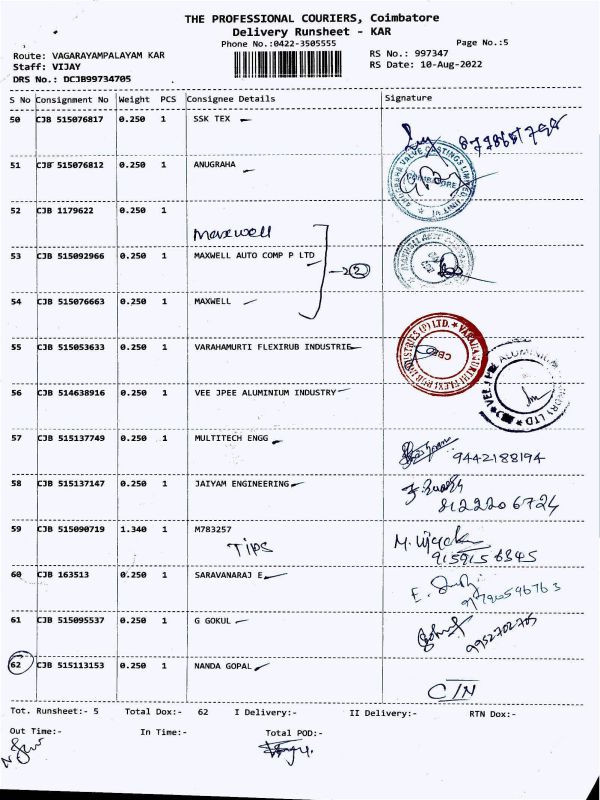 THE PROFESSIONAL COURIERS, Coimbatore
Delivery Runsheet - KAR
Phone No.:0422-3505555
Page No.:5
Route: VAGARAYAMPALAYAM KAR
RS No.: 997347
Staff: VIJAY
RS Date: 10-Aug-2022
DRS No.: DCJB99734705
S No Consignment No Weight PCS Consignee Details Signature
50 CJB 515076817 0.250 1 SSK TEX
51 CJB 515076812 0.250 1 ANUGRAHA
ANUGRAHA VALVE CASTINGS LIMITED, UNIT
COIMBATORE
52 CJB 1179622 0.250 1
Maxwell
53 CJB 515092966 0.250 1 MAXWELL AUTO COMP P LTD
2
MAXWELL AUTO
54 CJB 515076663 0.250 1 MAXWELL
55 CJB 515053633 0.250 1 VARAHAMURTI FLEXIRUB INDUSTRIE
VARAHAMURTHI FLEXIRUB INDUSTRIES (P) LTD.
CBE
56 CJB 514638916 0.250 1 VEE JPEE ALUMINIUM INDUSTRY
VEEJPEE ALUMINIUM FOUNDRY LTD
57 CJB 515137749 0.250 1 MULTITECH ENGG
9442188194
58 CJB 515137147 0.250 1 JAIYAM ENGINEERING
8122206724
59 CJB 515090719 1.340 1 M783257
Tips
9159156345
60 CJB 163513 0.250 1 SARAVANARAJ E
61 CJB 515095537 0.250 1 G GOKUL
9952702705
62 CJB 515113153 0.250 1 NANDA GOPAL
C/N
Tot. Runsheet:- 5 Total Dox:- 62 I Delivery:- II Delivery:- RTN Dox:-
Out Time:- In Time:- Total POD:-